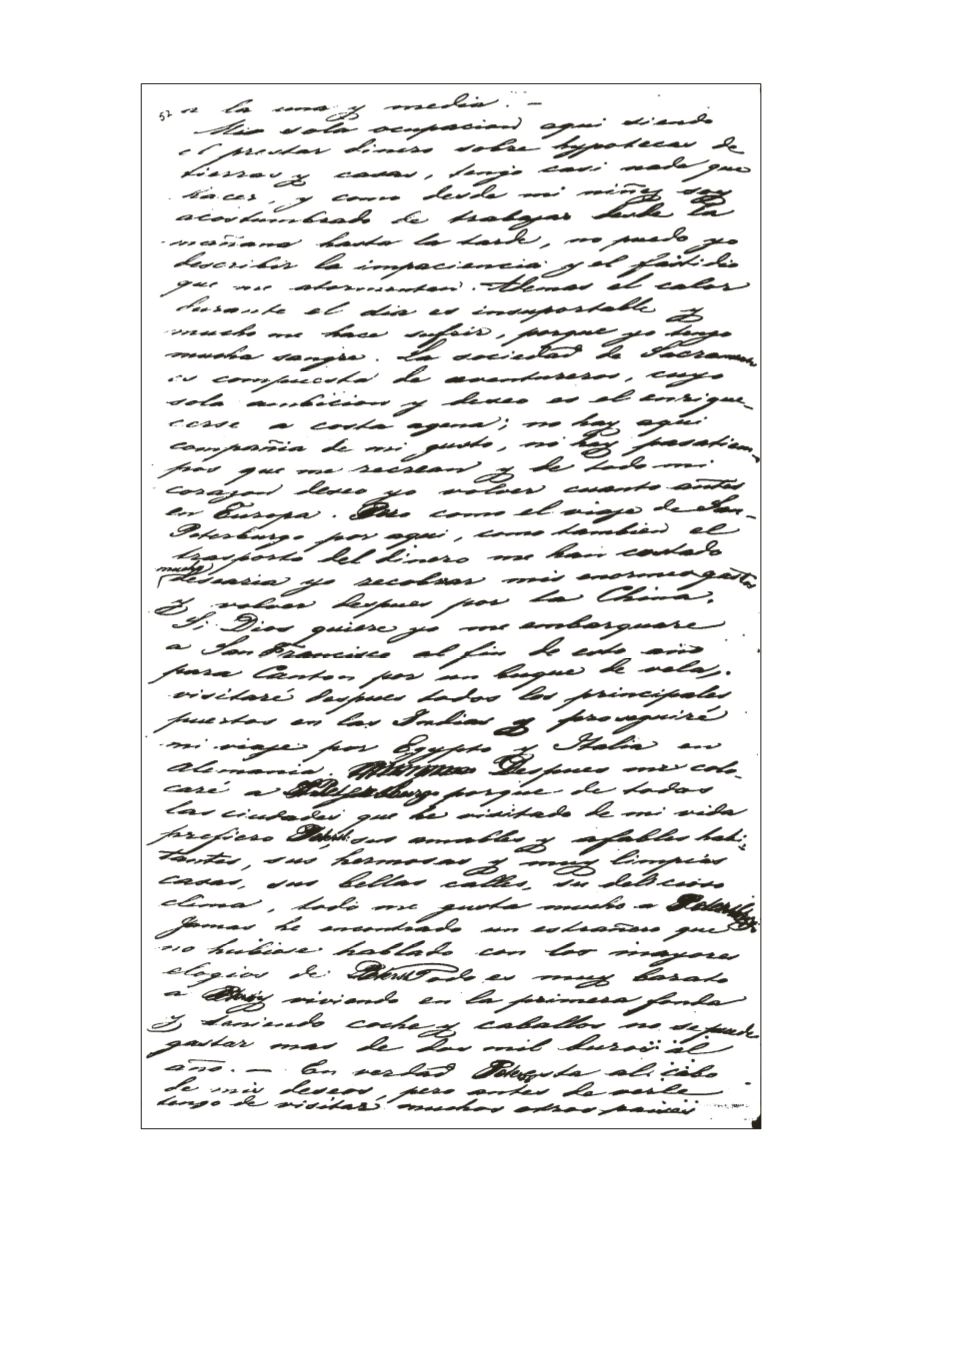 52 a la una y media. —
Mia sola ocupacion aqui siendo
el prestar dinero sobre hypotecas de
tierras y casas, tengo casi nada que
hacer, y como desde mi niñez soy
acostumbrado de trabajar desde la
mañana hasta la tarde, no puedo yo
describir la impaciencia y el fastidio
que me atormentan. Ademas el calor
durante el dia es insuportable y
mucho me hace sufrir, porque yo tengo
mucha sangre. La sociedad de Sacramento
es compuesta de aventureros, cuyo
sola ambicion y deseo es el enrique-
cerse a costa agena; no hay aqui
compañia de mi gusto, ni hay pasatiem-
pos que me recrean y de todo mi
corazon deseo yo volver cuanto antes
en Europa. Pero como el viaje de San-
Petersburgo por aqui, como tambien el
trasporto del dinero me han costado
mucho
desearia yo recobrar mis enormes gastos
y volver despues por la China.
Si Dios quiere yo me embarquare
a San Francisco al fin de esto año
para Canton por un buque de vela,.
visitaré despues todos los principales
puertos en las Indias y proseguiré
mi viaje por Egypto y Italia en
Alemania. Despues me colo-
caré a Petersburgo porque de todas
las ciudades que he visitado de mi vida
prefiero Petersb. sus amables y afables habi-
tantes, sus hermosas y muy limpias
casas, sus bellas calles, su delicioso
clima, todo me gusta mucho a Petersburgo.
Jamas he encontrado un estrañero que
no hubiese hablado con los mayores
elogios de Petersb. Todo es muy barato
a viviendo en la primera fonda
y teniendo coche y caballos no se puede
gastar mas de dos mil duros al
año. — En verdad Petersb. esta al cabo
de mis deseos, pero antes de verle
tengo de visitar muchos otros paises